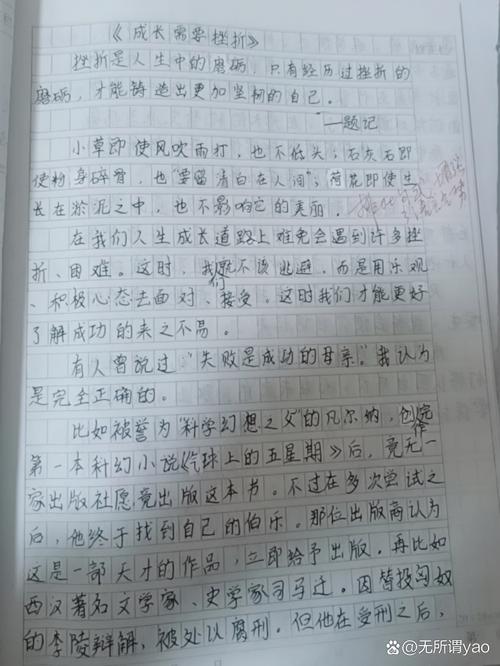 《成长需要挫折》
挫折是人生中的磨砺，只有经历过挫折的
磨砺，才能铸造出更加坚韧的自己。
—题记
小草即使风吹雨打，也不低头；石灰石即
使粉身碎骨，也“要留清白在人间”；荷花即使生
长在淤泥之中，也不影响它的美丽。
在我们人生成长道路上难免会遇到许多挫
折、困难。这时，我们不该逃避，而是用乐观
、积极心态去面对、接受。这时我们才能更好
了解成功的来之不易。
有人曾说过“失败是成功的母亲”。我认为
是完全正确的。
比如被誉为“科学幻想之父”的凡尔纳，创作完
第一本科幻小说《气球上的五星期》后，竟无一
家出版社愿竟出版这本书。不过在多次尝试之
后，他终于找到自己的伯乐。那位出版商认为
这是一部天才的作品，立即给予出版。再比如
西汉著名文学家、史学家司马迁。因替投匈奴
的李陵辩解，被处以腐刑。但他在受刑之后，
排比
@无所谓yao